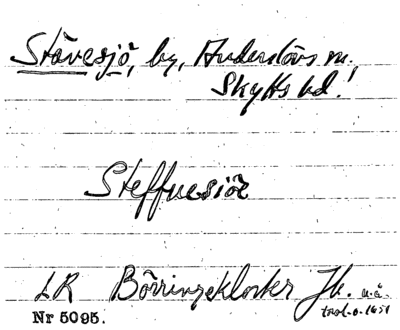 Stävesjö, by, Anderslövs sn,
Skytts hd.
Steffuesiöe
LR Börringekloster Jb. u.å.
trol. o. 1651
Nr 5095.